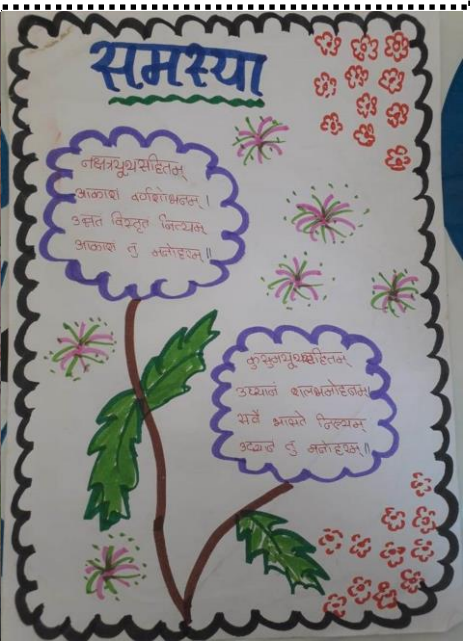 समस्या
नक्षत्रयूथसहितम्
आकाश वर्णशोभनम् ।
उन्नत विस्तृत नित्यम्
आकाश तु मनोहरम् ॥
कुसुमयूथसहितम्
उध्यानं शलभमोहनम्।
सर्वे भासते नित्यम्
उदयानं तु मनोहरम् ॥